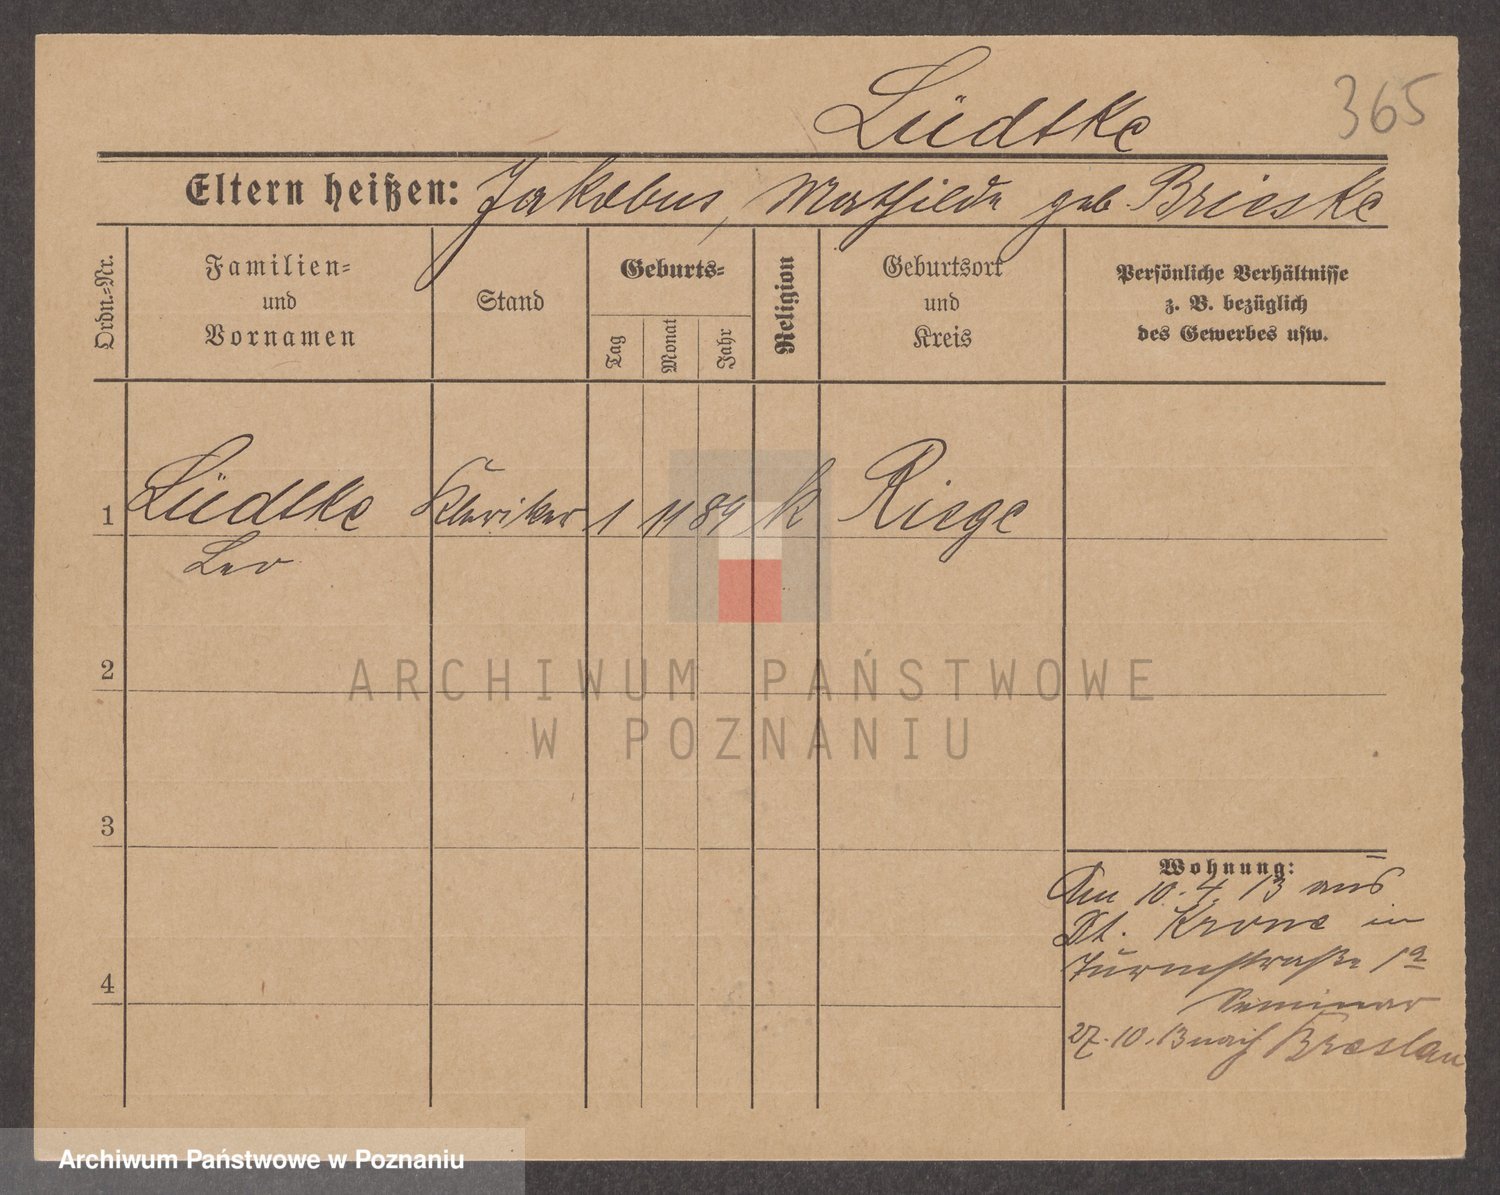 365
Lüdtke
Eltern heißen: Jakobus, Mathilde geb. Brieske
Ordn.-Nr.
Familien-
und
Vornamen
Stand
Geburts-
Tag
Monat
Jahr
Religion
Geburtsort
und
Kreis
Persönliche Verhältnisse
z. B. bezüglich
des Gewerbes usw.
1 Lüdtke Kleriker 1 11 89 k Riege
Leo
2
3
4
Wohnung:
Am 10. 4. 13 aus
Dt. Krone in
Turmstraße 1a
Seminar
27. 10. 13 nach Breslau
ARCHIWUM PAŃSTWOWE
W POZNANIU
Archiwum Państwowe w Poznaniu